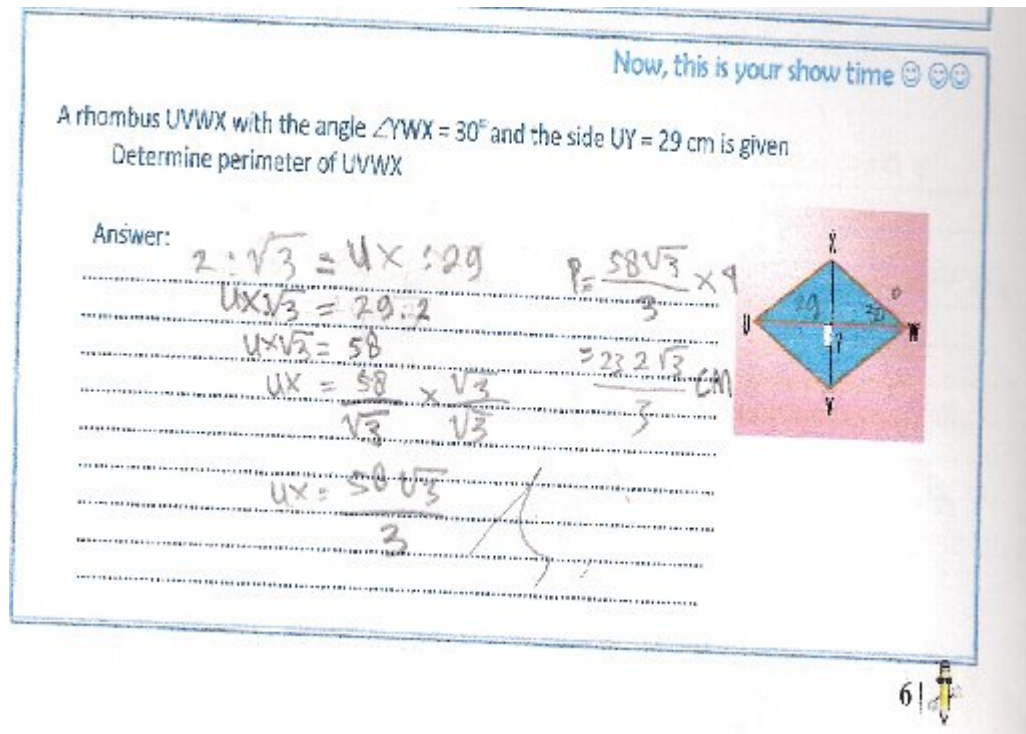 Now, this is your show time
A rhombus UVWX with the angle ∠YWX = 30° and the side UY = 29 cm is given
Determine perimeter of UVWX
Answer:
2 : √3 = UX : 29
UX√3 = 29.2
UX√3 = 58
UX = 58/√3 × √3/√3
UX = 58√3/3
P = 58√3/3 × 4
= 232√3/3 cm
X
29
30°
U
Y
W
V
6|